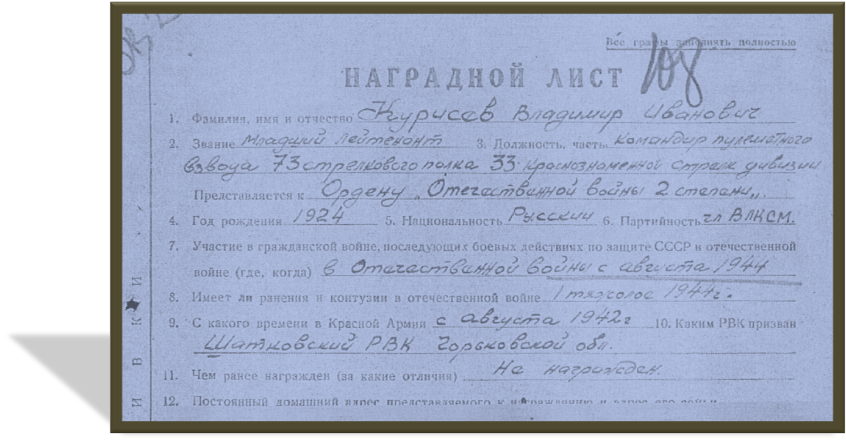 Все графы заполнять полностью
НАГРАДНОЙ ЛИСТ 108
1. Фамилия, имя и отчество Курисев Владимир Иванович
2. Звание младший лейтенант 3. Должность, часть командир пулеметного
взвода 73 стрелкового полка 33 Краснознаменной стрелк дивизии
Представляется к Ордену „Отечественной войны 2 степени„.
4. Год рождения 1924 5. Национальность Русский 6. Партийность чл ВЛКСМ.
7. Участие в гражданской войне, последующих боевых действиях по защите СССР и отечественной
войне (где, когда) в Отечественной войны с августа 1944
8. Имеет ли ранения и контузии в отечественной войне 1 тяжолое 1944г.
9. С какого времени в Красной Армии с августа 1942г 10. Каким РВК призван
Шатковский РВК Горьковской обл.
11. Чем ранее награжден (за какие отличия) Не награжден.
12. Постоянный домашний адрес представляемого к награждению и адрес его семьи